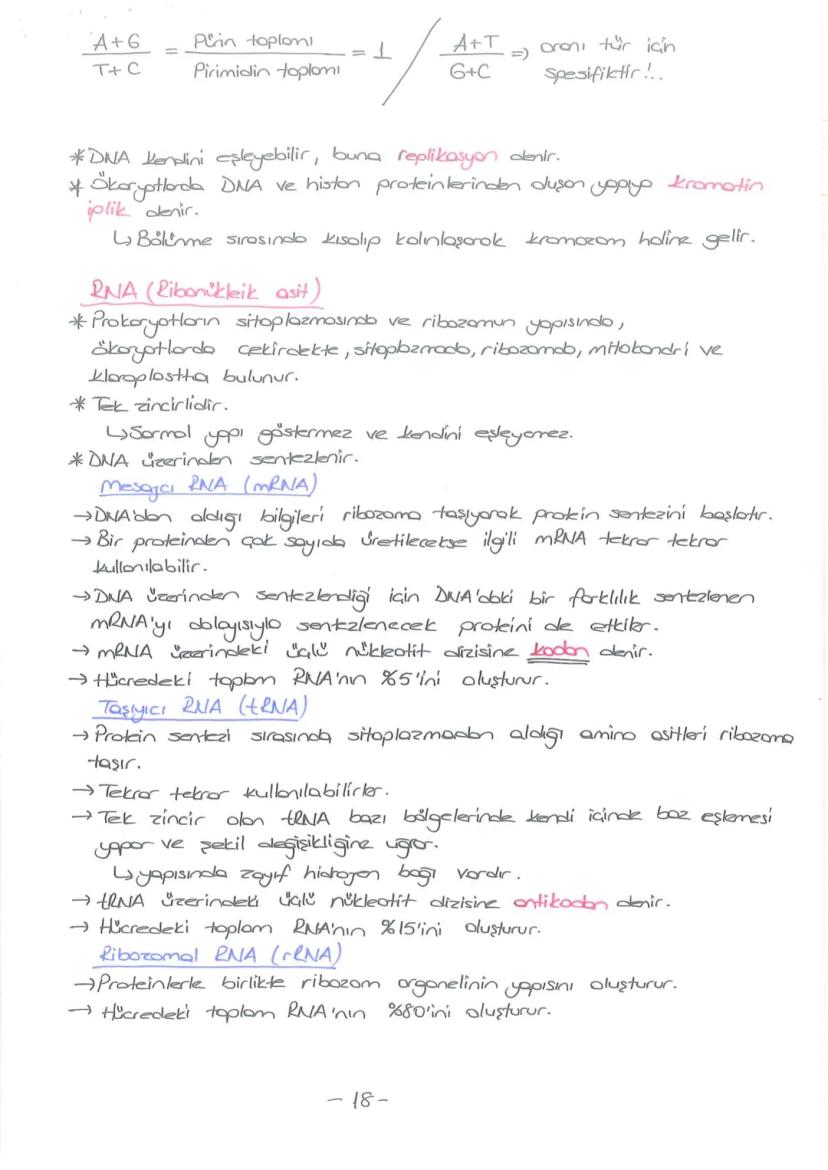 A+G / T+C = Pürin toplamı / Pirimidin toplamı = 1 / A+T / G+C ⇒ oranı tür için spesifiktir!..
*DNA kendini eşleyebilir, buna replikasyon denir.
* Ökaryotlarda DNA ve histon proteinlerinden oluşan yapıya kromatin
iplik denir.
↳ Bölünme sırasında kısalıp kalınlaşarak kromozom haline gelir.
RNA (Ribonükleik asit)
* Prokaryotların sitoplazmasında ve ribozomun yapısında,
ökaryotlarda çekirdekte, sitoplazmada, ribozomda, mitokondri ve
kloroplastta bulunur.
* Tek zincirlidir.
↳Sarmal yapı göstermez ve kendini eşleyemez.
* DNA üzerinden sentezlenir.
Mesajcı RNA (mRNA)
→DNA'dan aldığı bilgileri ribozoma taşıyarak protein sentezini başlatır.
→ Bir proteinden çok sayıda üretilecekse ilgili mRNA tekrar tekrar
kullanılabilir.
→DNA üzerinden sentezlendiği için DNA'daki bir farklılık sentezlenen
mRNA'yı dolayısıyla sentezlenecek proteini de etkiler.
→ mRNA üzerindeki üçlü nükleotit dizisine kodon denir.
→ Hücredeki toplam RNA'nın %5'ini oluşturur.
Taşıyıcı RNA (tRNA)
→ Protein sentezi sırasında sitoplazmadan aldığı amino asitleri ribozoma
taşır.
→ Tekrar tekrar kullanılabilirler.
→ Tek zincir olan tRNA bazı bölgelerinde kendi içinde baz eşlemesi
yapar ve şekil değişikliğine uğrar.
↳yapısında zayıf hidrojen bağı vardır.
→ tRNA üzerindeki üçlü nükleotit dizisine antikodon denir.
→ Hücredeki toplam RNA'nın %15'ini oluşturur.
Ribozomal RNA (rRNA)
→Proteinlerle birlikte ribozom organelinin yapısını oluşturur.
→ Hücredeki toplam RNA'nın %80'ini oluşturur.
-18-